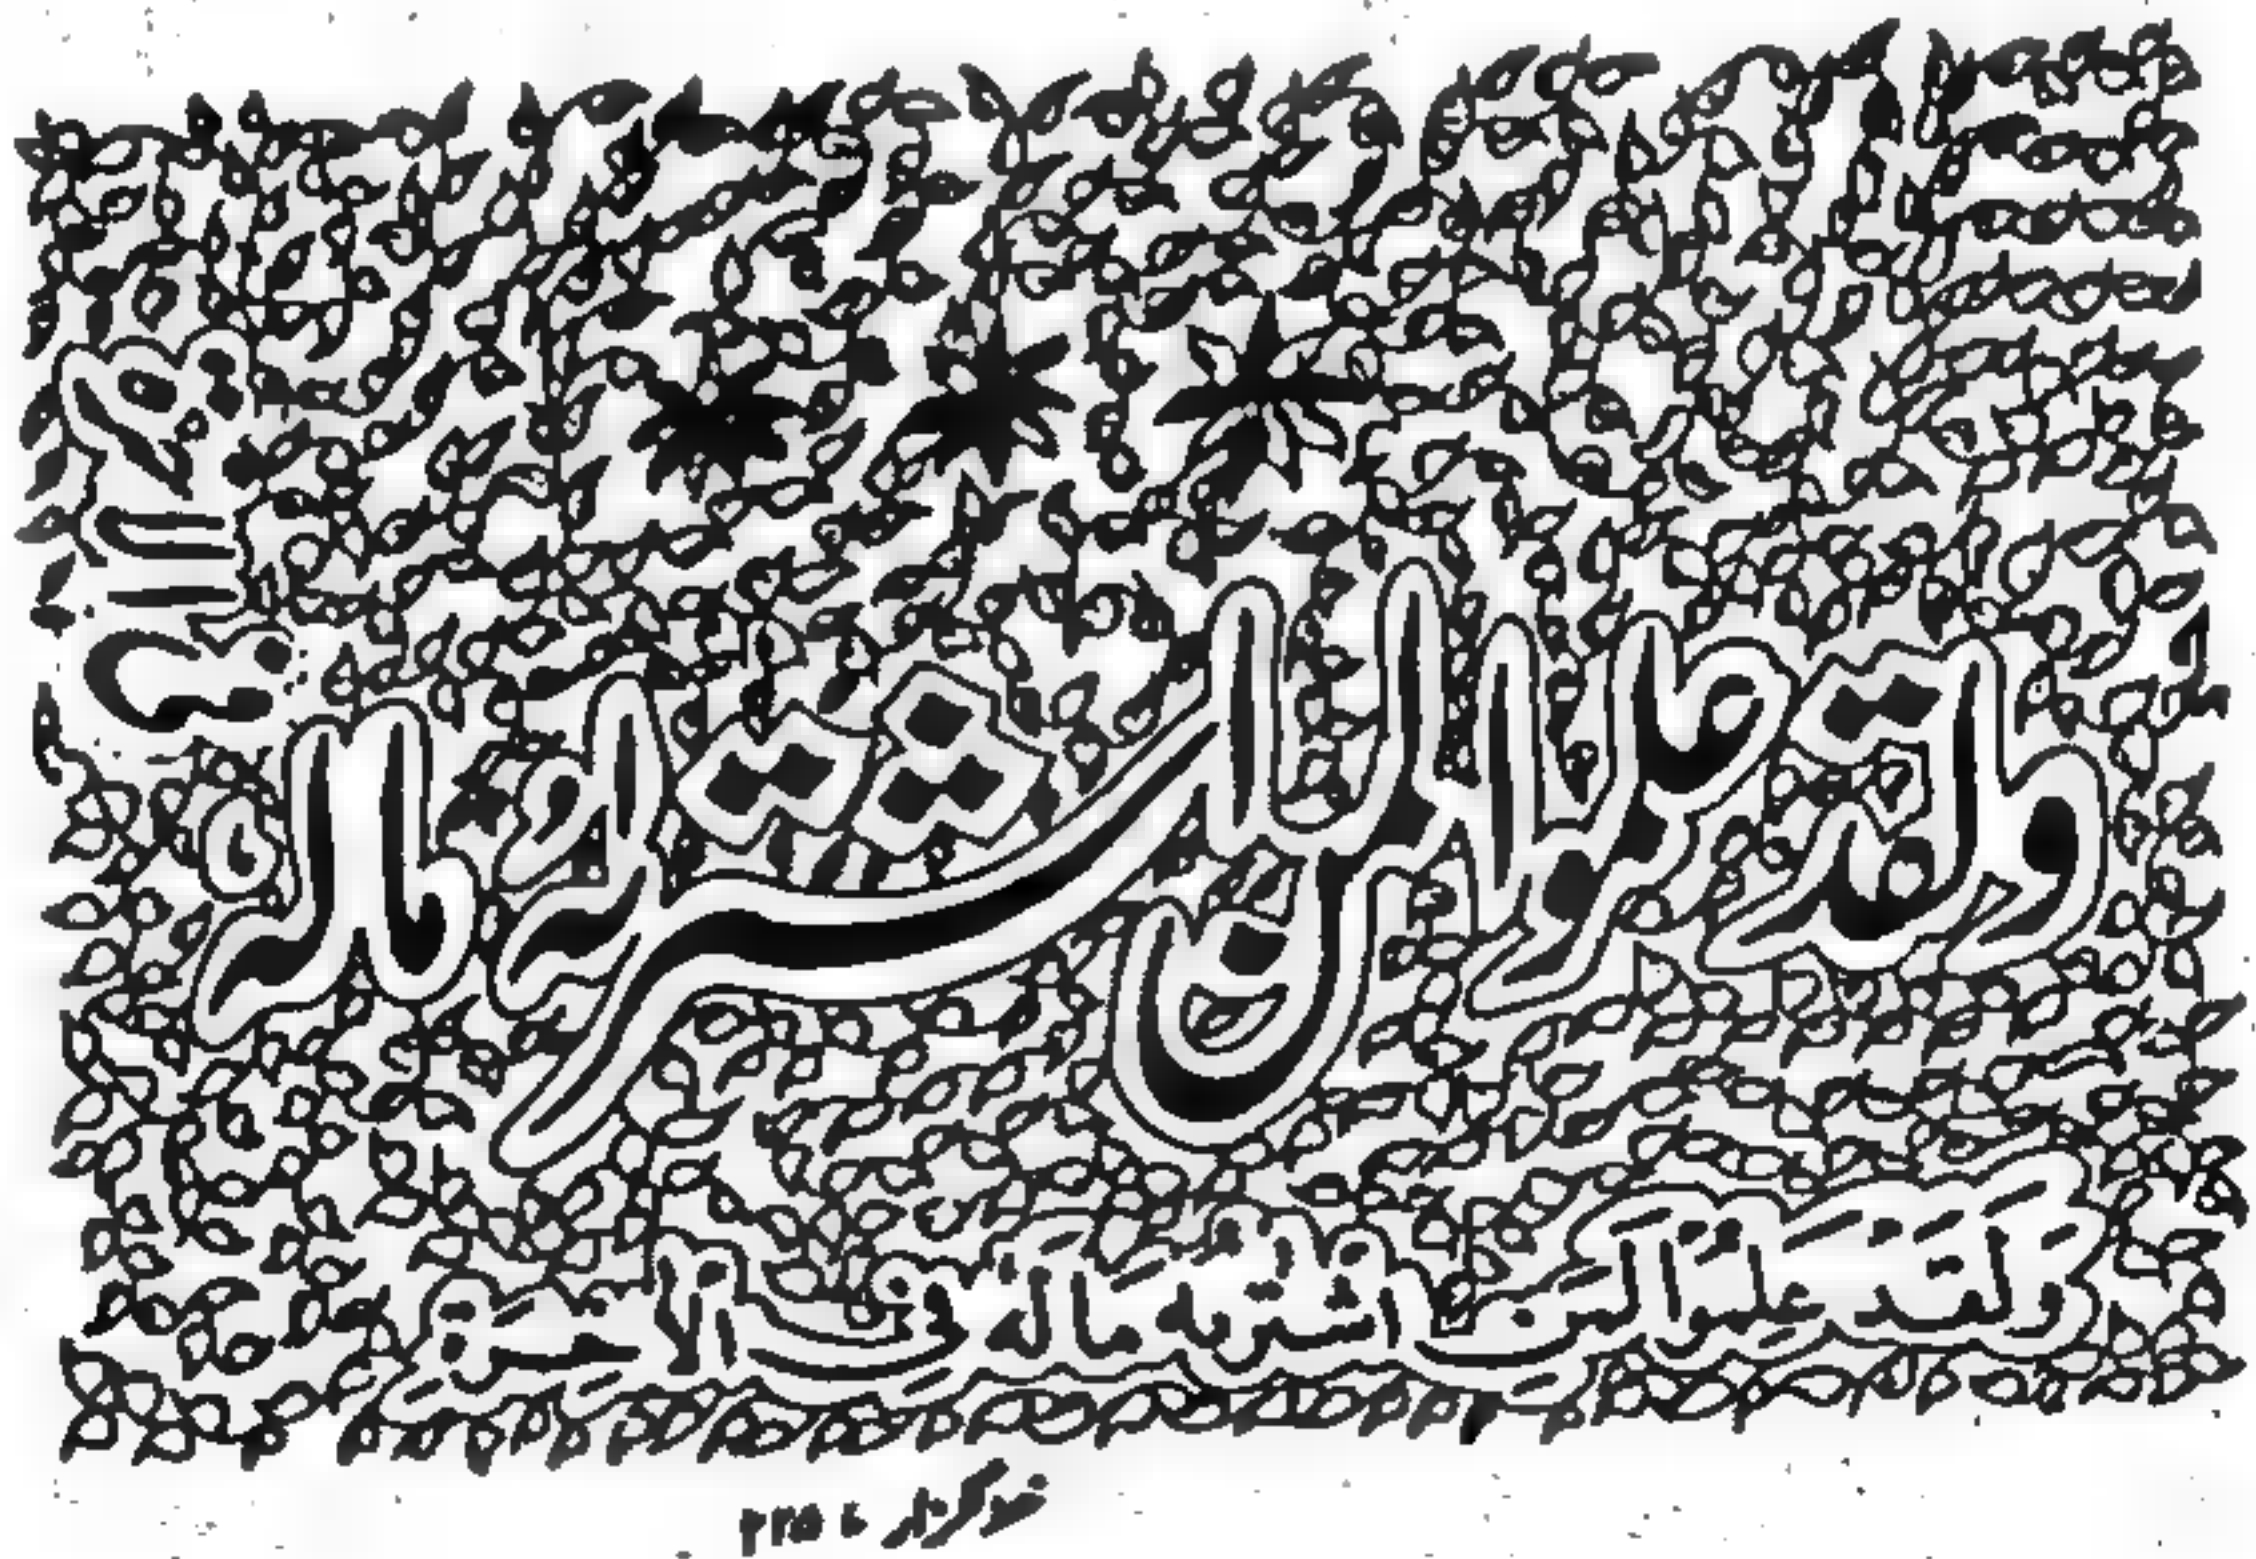 ولقد علموا لمن اشتريه ماله
في الاخرة
وَلَقَد عَلِمُوا لَمَن اشتريه ماله في الاخرة